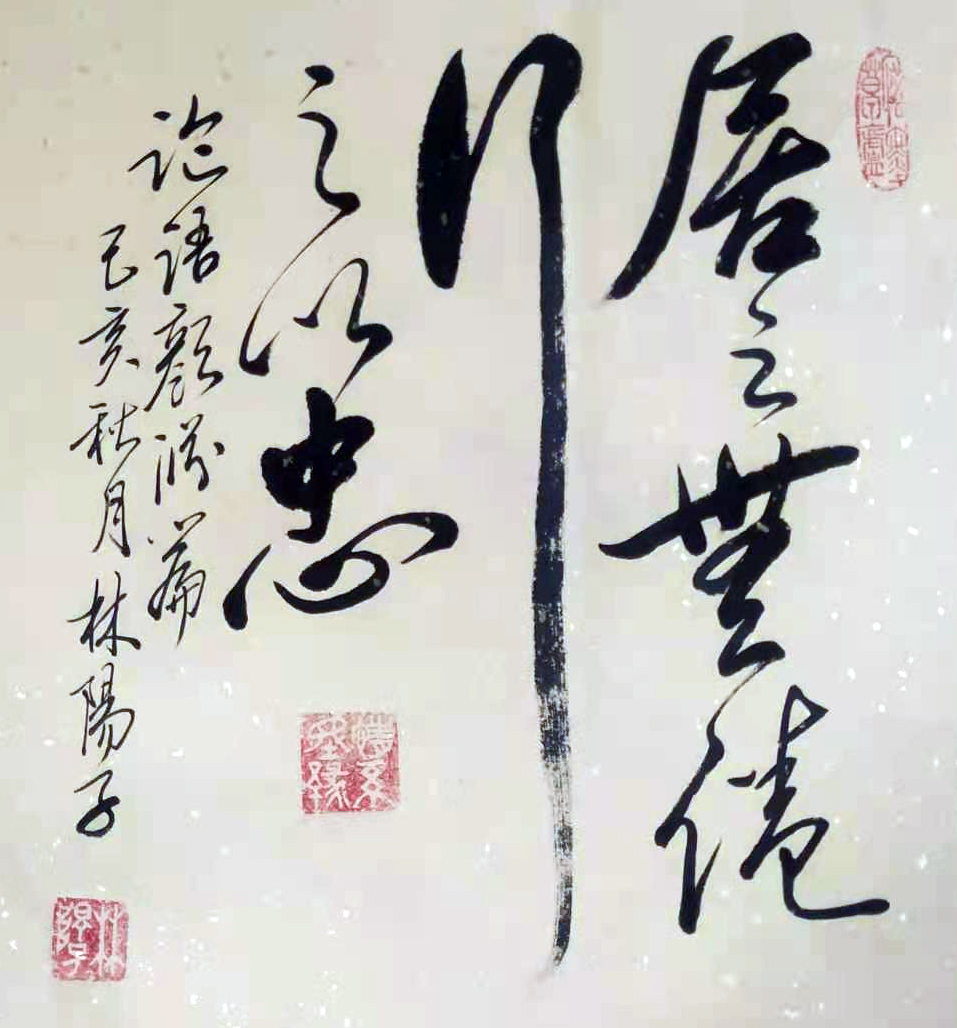 居之無倦
行
之以忠
論語顏淵篇
己亥秋月林陽子
林陽子